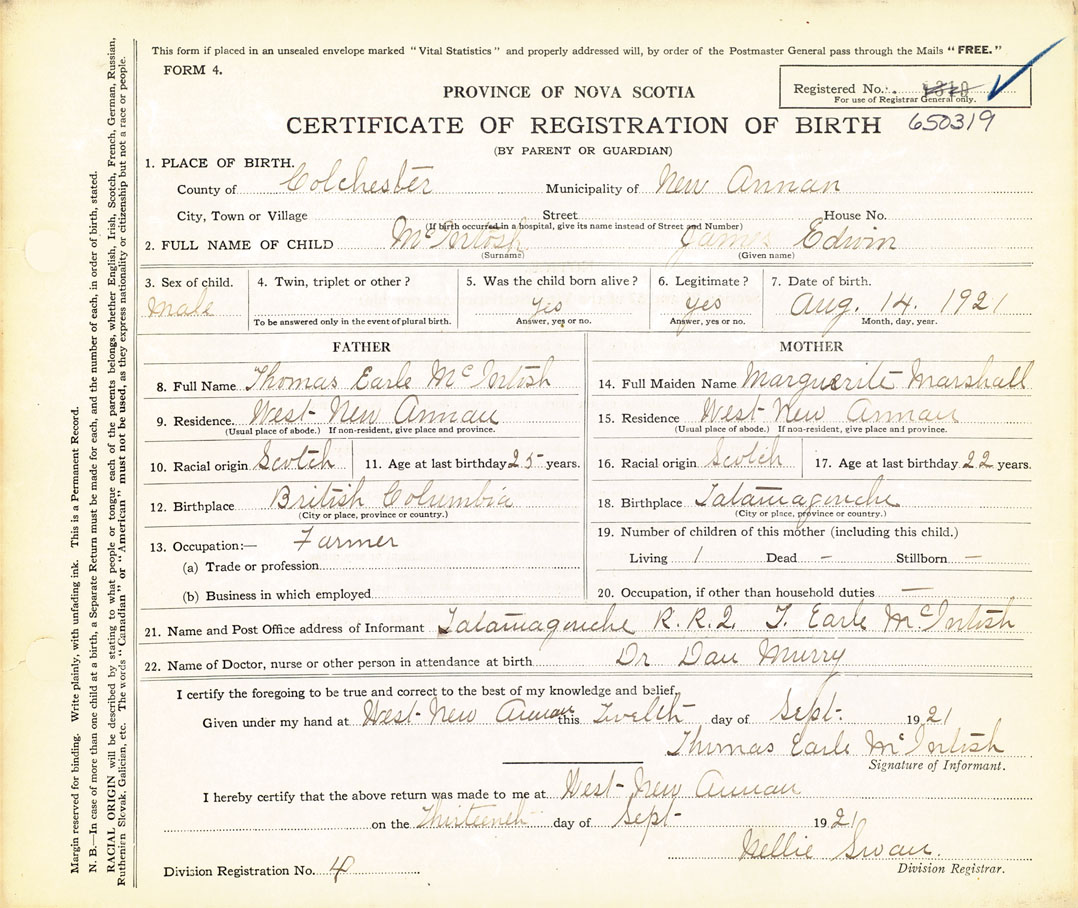 This form if placed in an unsealed envelope marked "Vital Statistics" and properly addressed will, by order of the Postmaster General pass through the Mails "FREE."
FORM 4.
Registered No.
For use of Registrar General only.
PROVINCE OF NOVA SCOTIA
CERTIFICATE OF REGISTRATION OF BIRTH 650319
(BY PARENT OR GUARDIAN)
1. PLACE OF BIRTH.
County of Colchester Municipality of New Annan
City, Town or Village Street House No.
(If birth occurred in a hospital, give its name instead of Street and Number)
2. FULL NAME OF CHILD McIntosh James Edwin
(Surname) (Given name)
3. Sex of child. 4. Twin, triplet or other? 5. Was the child born alive? 6. Legitimate? 7. Date of birth.
male Yes Yes Aug. 14. 1921
To be answered only in the event of plural birth. Answer, yes or no. Answer, yes or no. Month, day, year.
FATHER MOTHER
8. Full Name Thomas Earle McIntosh 14. Full Maiden Name Marguerite Marshall
9. Residence. West-New Annan 15. Residence West-New Annan
(Usual place of abode.) If non-resident, give place and province. (Usual place of abode.) If non-resident, give place and province.
10. Racial origin Scotch 11. Age at last birthday 25 years. 16. Racial origin Scotch 17. Age at last birthday 22 years.
12. Birthplace British Columbia 18. Birthplace Tatamagouche
(City or place, province or country.) (City or place, province or country.)
13. Occupation:— Farmer 19. Number of children of this mother (including this child.)
(a) Trade or profession Living 1 Dead – Stillborn –
(b) Business in which employed 20. Occupation, if other than household duties —
21. Name and Post Office address of Informant Tatamagouche R.R.2. T. Earle McIntosh
22. Name of Doctor, nurse or other person in attendance at birth Dr Dan Murry
I certify the foregoing to be true and correct to the best of my knowledge and belief,
Given under my hand at West-New Annan this Twelth day of Sept. 1921
Thomas Earle McIntosh
Signature of Informant.
I hereby certify that the above return was made to me at West-New Annan
on the Thirteenth day of Sept- 1921
Nellie Swan.
Division Registration No. 4 Division Registrar.
Margin reserved for binding. Write plainly, with unfading ink. This is a Permanent Record.
N. B.—In case of more than one child at a birth, a Separate Return must be made for each, and the number of each, in order of birth, stated.
RACIAL ORIGIN will be described by stating to what people or tongue each of the parents belongs, whether English, Irish, Scotch, French, German, Russian,
Ruthenian Slovak, Galician, etc. The words "Canadian" or "American" must not be used, as they express nationality or citizenship but not a race or people.